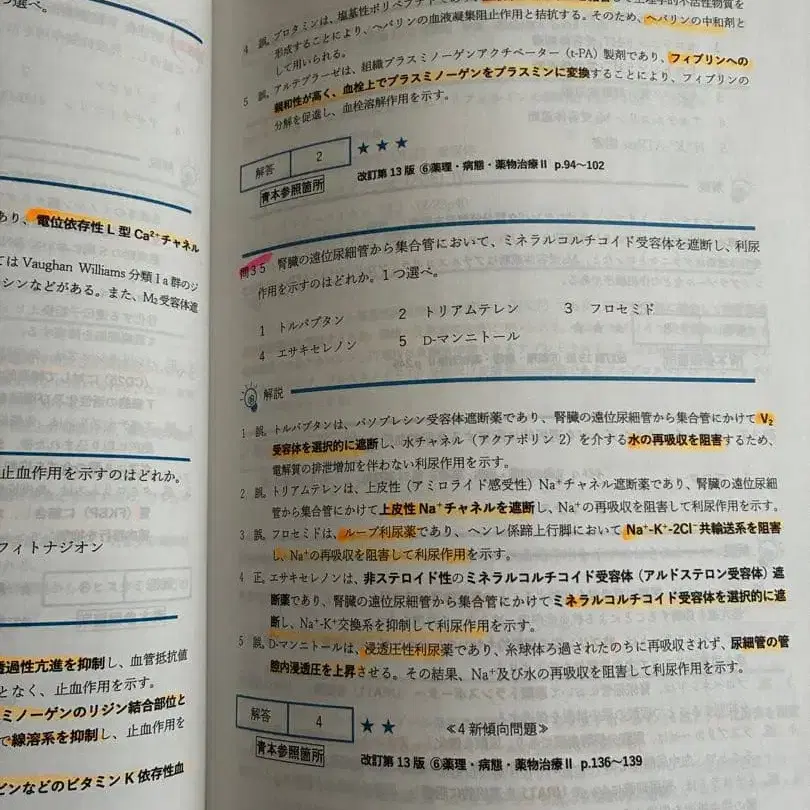 つ選べ。
あり、電位依存性L型Ca²⁺チャネル
てはVaughan Williams分類Ⅰa群のジ
シンなどがある。また、M₂受容体遮
止血作用を示すのはどれか。
フィトナジオン
透過性亢進を抑制し、血管抵抗値
となく、止血作用を示す。
ミノーゲンのリジン結合部位と
で線溶系を抑制し、止血作用を
ビンなどのビタミンK依存性血
4 誤。プロタミンは、塩基性ポリペプチド
形成することにより、ヘパリンの血液凝集阻止作用と拮抗する。そのため、ヘパリンの中和剤と
して用いられる。
5 誤。アルテプラーゼは、組織プラスミノーゲンアクチベーター(t-PA)製剤であり、フィブリンへの
親和性が高く、血栓上でプラスミノーゲンをプラスミンに変換することにより、フィブリンの
分解を促進し、血栓溶解作用を示す。
解答 2 ★★★
青本参照箇所 改訂第13版 ⑥薬理・病態・薬物治療Ⅱ p.94～102
問35 腎臓の遠位尿細管から集合管において、ミネラルコルチコイド受容体を遮断し、利尿
作用を示すのはどれか。1つ選べ。
1 トルバプタン 2 トリアムテレン 3 フロセミド
4 エサキセレノン 5 D-マンニトール
解説
1 誤。トルバプタンは、バソプレシン受容体遮断薬であり、腎臓の遠位尿細管から集合管にかけてV₂
受容体を選択的に遮断し、水チャネル(アクアポリン2)を介する水の再吸収を阻害するため、
電解質の排泄増加を伴わない利尿作用を示す。
2 誤。トリアムテレンは、上皮性(アミロライド感受性)Na⁺チャネル遮断薬であり、腎臓の遠位尿細
管から集合管にかけて上皮性Na⁺チャネルを遮断し、Na⁺の再吸収を阻害して利尿作用を示す。
3 誤。フロセミドは、ループ利尿薬であり、ヘンレ係蹄上行脚においてNa⁺-K⁺-2Cl⁻共輸送系を阻害
し、Na⁺の再吸収を阻害して利尿作用を示す。
4 正。エサキセレノンは、非ステロイド性のミネラルコルチコイド受容体(アルドステロン受容体)遮
断薬であり、腎臓の遠位尿細管から集合管にかけてミネラルコルチコイド受容体を選択的に遮
断し、Na⁺-K⁺交換系を抑制して利尿作用を示す。
5 誤。D-マンニトールは、浸透圧性利尿薬であり、糸球体ろ過されたのちに再吸収されず、尿細管の管
腔内浸透圧を上昇させる。その結果、Na⁺及び水の再吸収を阻害して利尿作用を示す。
解答 4 ★★ ≪4新傾向問題≫
青本参照箇所 改訂第13版 ⑥薬理・病態・薬物治療Ⅱ p.136～139